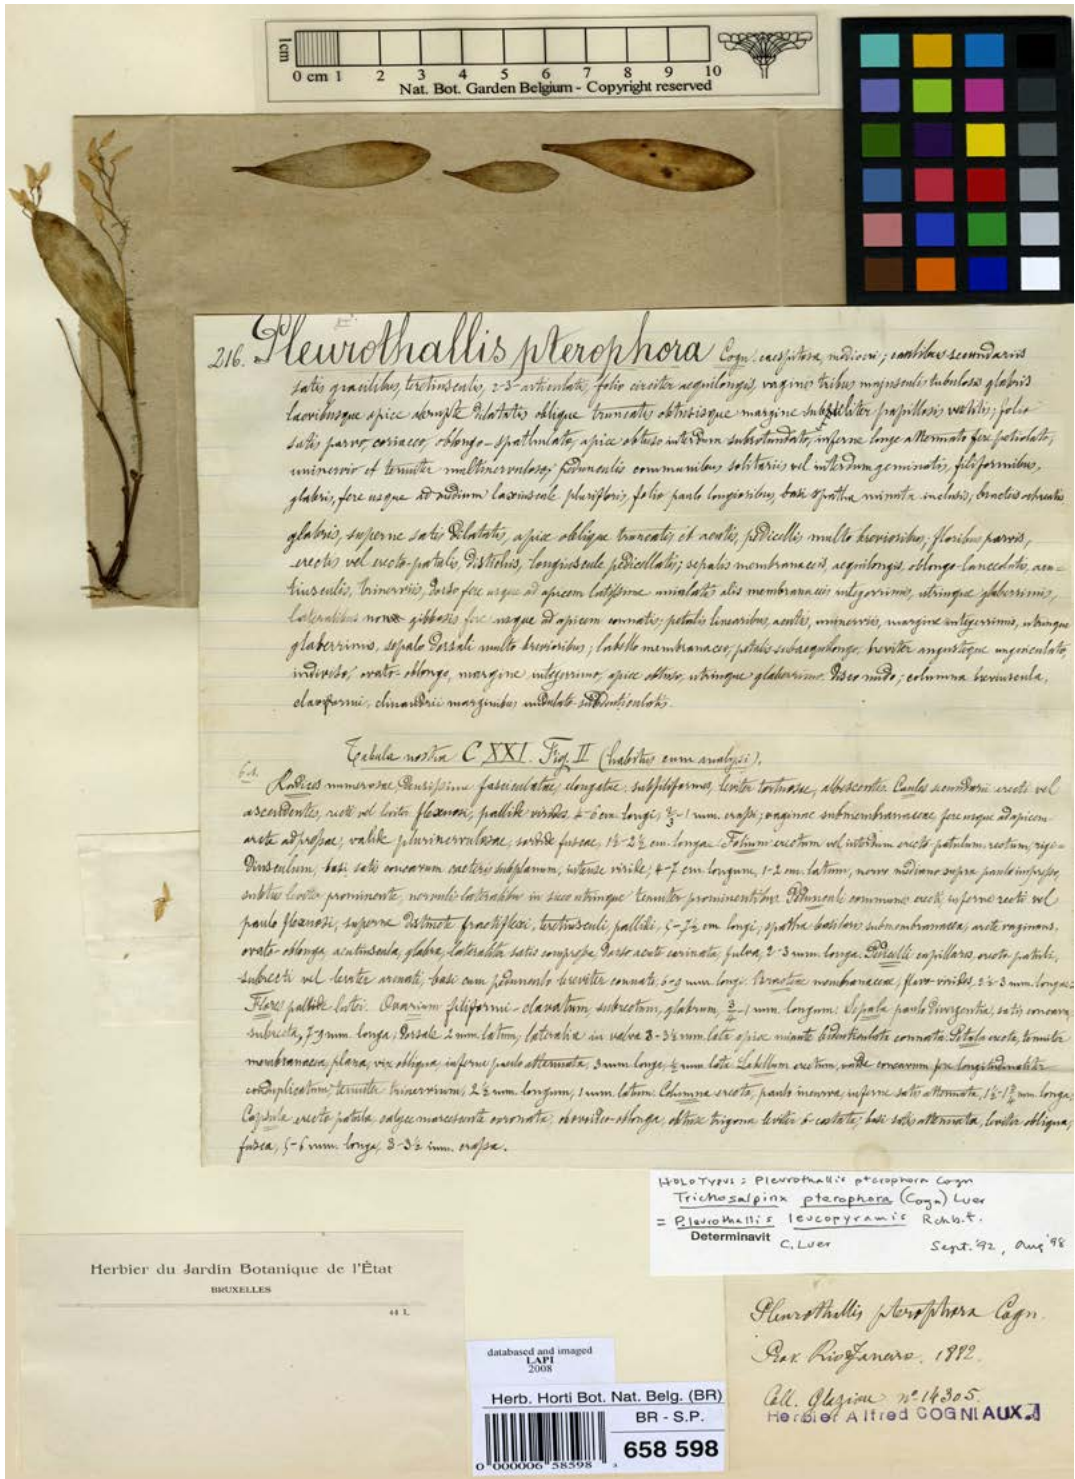 1cm
0 cm 1 2 3 4 5 6 7 8 9 10
Nat. Bot. Garden Belgium - Copyright reserved
216. Pleurothallis pterophora Cogn. caespitosa, mediocri; caulibus secundariis
satis gracilibus, teretiusculis, 2-3-articulatis, folio circiter aequilongis, vaginis tribus majusculis tubulosis glabris
laevibusque apice abrupte dilatatis oblique truncatis obtusisque margine subtiliter papillosis vestitis; folio
satis parvo, coriaceo, oblongo-spathulato, apice obtuso interdum subrotundato, inferne longe attenuato fere petiolato,
uninervio et tenuiter multinervuloso; pedunculis communibus solitariis vel interdum geminatis, filiformibus,
glabris, fere usque ad medium laxiuscule plurifloris, folio paulo longioribus, basi spatha minuta inclusis; bracteis ochreatis
glabris, superne satis dilatatis, apice oblique truncatis et acutis, pedicellis multo brevioribus; floribus parvis,
erectis vel erecto-patulis, distichis, longiuscule pedicellatis; sepalis membranaceis, aequilongis, oblongo-lanceolatis, acu-
tiusculis, trinerviis, dorso fere usque ad apicem latissime unialatis alis membranaceis integerrimis, utrinque glaberrimis,
lateralibus non gibbosis fere usque ad apicem connatis; petalis linearibus, acutis, uninerviis, margine integerrimis, utrinque
glaberrimis, sepalo dorsali multo brevioribus; labello membranaceo, petalis subaequilongo, breviter angusteque unguiculato,
indiviso, ovato-oblongo, margine integerrimo, apice obtuso, utrinque glaberrimo, disco nudo; columna breviuscula,
clavaeformi, clinandrii marginibus undulato-subdenticulatis.
Tabula nostra CXXI. Fig. II (habitus cum analysi).
Radices numerosae, densissime fasciculatae, elongatae, subfiliformes, leviter tortuosae, albescentes. Caules secundarii erecti vel
ascendentes, recti vel leviter flexuosi, pallide virides, 4-6 cm. longi, ⅔-1 mm. crassi; vaginae submembranaceae fere usque ad apicem
arcte adpressae, valide plurinervulosae, sordide fuscae, 1½-2½ cm. longae. Folium erectum vel interdum erecto-patulum, rectum, rigi-
diusculum, basi satis concavum caeteris subplanum, intense viride, 4-7 cm. longum, 1-2 cm. latum, nervo mediano supra paulo impresso,
subtus leviter prominente, nervulis lateralibus in sicco utrinque tenuiter prominentibus. Pedunculi communes erecti, inferne recti vel
paulo flexuosi, superne distincte fractiflexi, teretiusculi, pallidi, 5-7½ cm. longi; spatha basilaris submembranacea, arcte vaginans,
ovato-oblonga, acutiuscula, glabra, lateraliter satis compressa, dorso acute carinata, fulva, 2-3 mm. longa. Pedicelli capillares, erecto-patuli,
subrecti vel leviter arcuati, basi cum pedunculo breviter connati, 6-9 mm. longi. Bracteae membranaceae, flavo-virides, 2½-3 mm. longae.
Flores pallide lutei. Ovarium filiformi-clavatum, subrectum, glabrum, ¾-1 mm. longum. Sepala paulo divergentia, satis concava,
subrecta, 7-9 mm. longa, dorsale 2 mm. latum, lateralia in valva 3-3½ mm. lata apice minute bidenticulata connata. Petala erecta, tenuiter
membranacea, plana, vix obliqua, inferne paulo attenuata, 3 mm. longa, ½ mm. lata. Labellum erectum, valde concavum fere longitudinaliter
conduplicatum, tenuiter trinervium, 2½ mm. longum, 1 mm. latum. Columna erecta, paulo incurva, inferne satis attenuata, 1½-1¾ mm. longa.
Capsula erecto-patula, calyce marcescente coronata, obovoideo-oblonga, obtuse trigona leviter 6-costata, basi satis attenuata, leviter obliqua,
fusca, 5-6 mm. longa, 3-3½ mm. crassa.
HOLOTYPUS: Pleurothallis pterophora Cogn
Trichosalpinx pterophora (Cogn) Luer
= Pleurothallis leucopyramis Rchb.f.
Determinavit C. Luer Sept. '92, Aug '98
Herbier du Jardin Botanique de l'État
BRUXELLES
Pleurothallis pterophora Cogn.
Prox. Rio Janeiro. 1882.
Coll. Glaziou nº 14305.
Herbier Alfred COGNIAUX.
databased and imaged
LAPI
2008
Herb. Horti Bot. Nat. Belg. (BR)
BR - S.P.
658 598
0 000006 58598